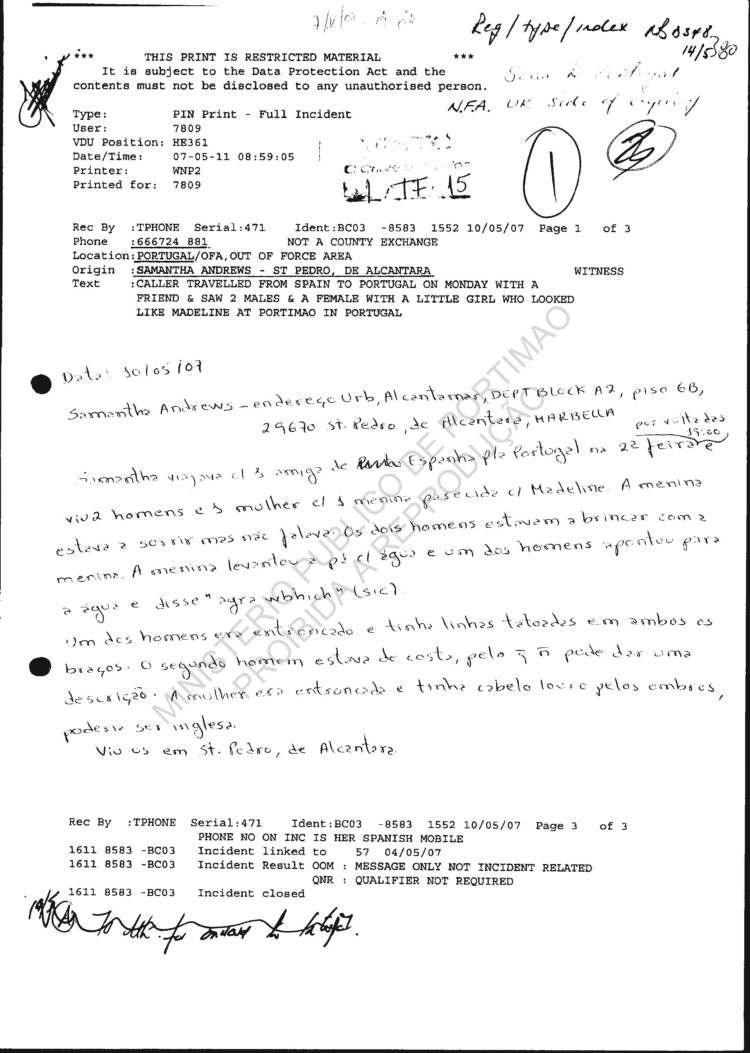 Reg/type/index
14/5
*** THIS PRINT IS RESTRICTED MATERIAL ***
It is subject to the Data Protection Act and the
contents must not be disclosed to any unauthorised person.
N.F.A. UK Side of
Type: PIN Print - Full Incident
User: 7809
VDU Position: HE361
Date/Time: 07-05-11 08:59:05
Printer: WNP2
Printed for: 7809
1
15
Rec By :TPHONE Serial:471 Ident:BC03 -8583 1552 10/05/07 Page 1 of 3
Phone :666724 881 NOT A COUNTY EXCHANGE
Location:PORTUGAL/OFA,OUT OF FORCE AREA
Origin :SAMANTHA ANDREWS - ST PEDRO, DE ALCANTARA WITNESS
Text :CALLER TRAVELLED FROM SPAIN TO PORTUGAL ON MONDAY WITH A
FRIEND & SAW 2 MALES & A FEMALE WITH A LITTLE GIRL WHO LOOKED
LIKE MADELINE AT PORTIMAO IN PORTUGAL
Data: 10/05/07
Samantha Andrews - endereço Urb, Alcantamar, DEPT BLOCK A2, piso 6B,
29670 St. Pedro, de Alcantara, MARBELLA
por volta das
19:00
Samantha viajava c/ 1 amiga de Espanha p/a Portugal na 2ª feira e
viu 2 homens e 1 mulher c/ 1 menina parecida c/ Madeline. A menina
estava a sorrir mas não falava. Os dois homens estavam a brincar com a
menina. A menina levantou a pá c/ água e um dos homens apontou para
a água e disse "agra wbhich" (sic).
Um dos homens era entroncado e tinha linhas tatoadas em ambos os
braços. O segundo homem estava de costa, pelo q̃ ñ pode dar uma
descrição. A mulher era entroncada e tinha cabelo louro pelos ombros,
poderia ser inglesa.
Viu os em St. Pedro, de Alcantara.
MINISTERIO PUBLICO DE PORTIMAO
PROIBIDA A REPRODUÇÃO
Rec By :TPHONE Serial:471 Ident:BC03 -8583 1552 10/05/07 Page 3 of 3
PHONE NO ON INC IS HER SPANISH MOBILE
1611 8583 -BC03 Incident linked to 57 04/05/07
1611 8583 -BC03 Incident Result OOM : MESSAGE ONLY NOT INCIDENT RELATED
QNR : QUALIFIER NOT REQUIRED
1611 8583 -BC03 Incident closed